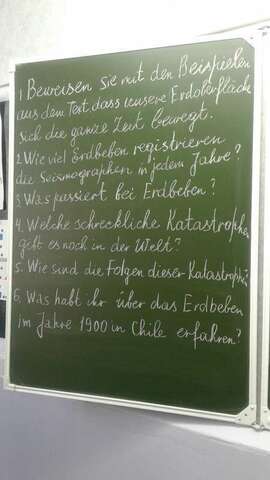 1 Beweisen Sie mit den Beispielen
aus dem Text dass unsere Erdoberfläche
sich die ganze Zeit bewegt.
2. Wie viel Erdbeben registrieren
die Seismographen in jedem Jahre?
3 Was passiert bei Erdbeben?
4. Welche schreckliche Katastrophen
gibt es noch in der Welt?
5. Wie sind die Folgen dieser Katastroph
6. Was habt ihr über das Erdbeben
im Jahre 1900 in Chile erfahren?